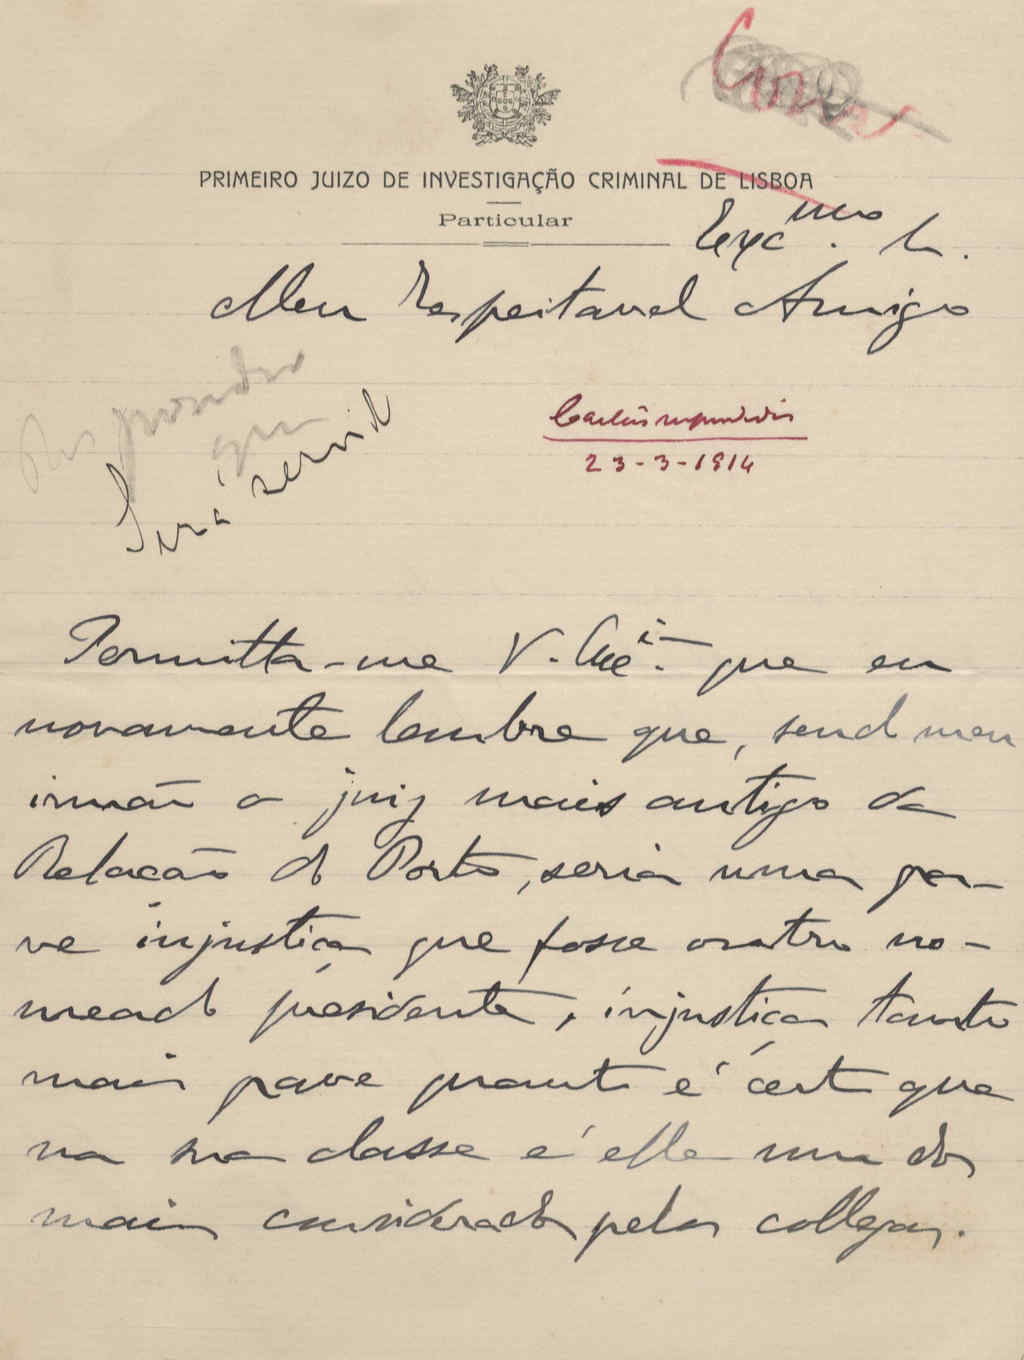 PRIMEIRO JUIZO DE INVESTIGAÇÃO CRIMINAL DE LISBOA
Particular
Exc.mo
Meu Respeitavel Amigo
Responder
que
Será servid
Cartões respondidos
23-3-1914
Permitta-me V. Exc.ia que eu
novamente lembre que, send meu
irmão o juiz mais antigo da
Relação do Porto, seria uma gra-
ve injustiça que fosse outro no-
meado presidente, injustiça tanto
mais grave quanto é certo que
na sua classe é elle um dos
mais considerados pelos collegas.